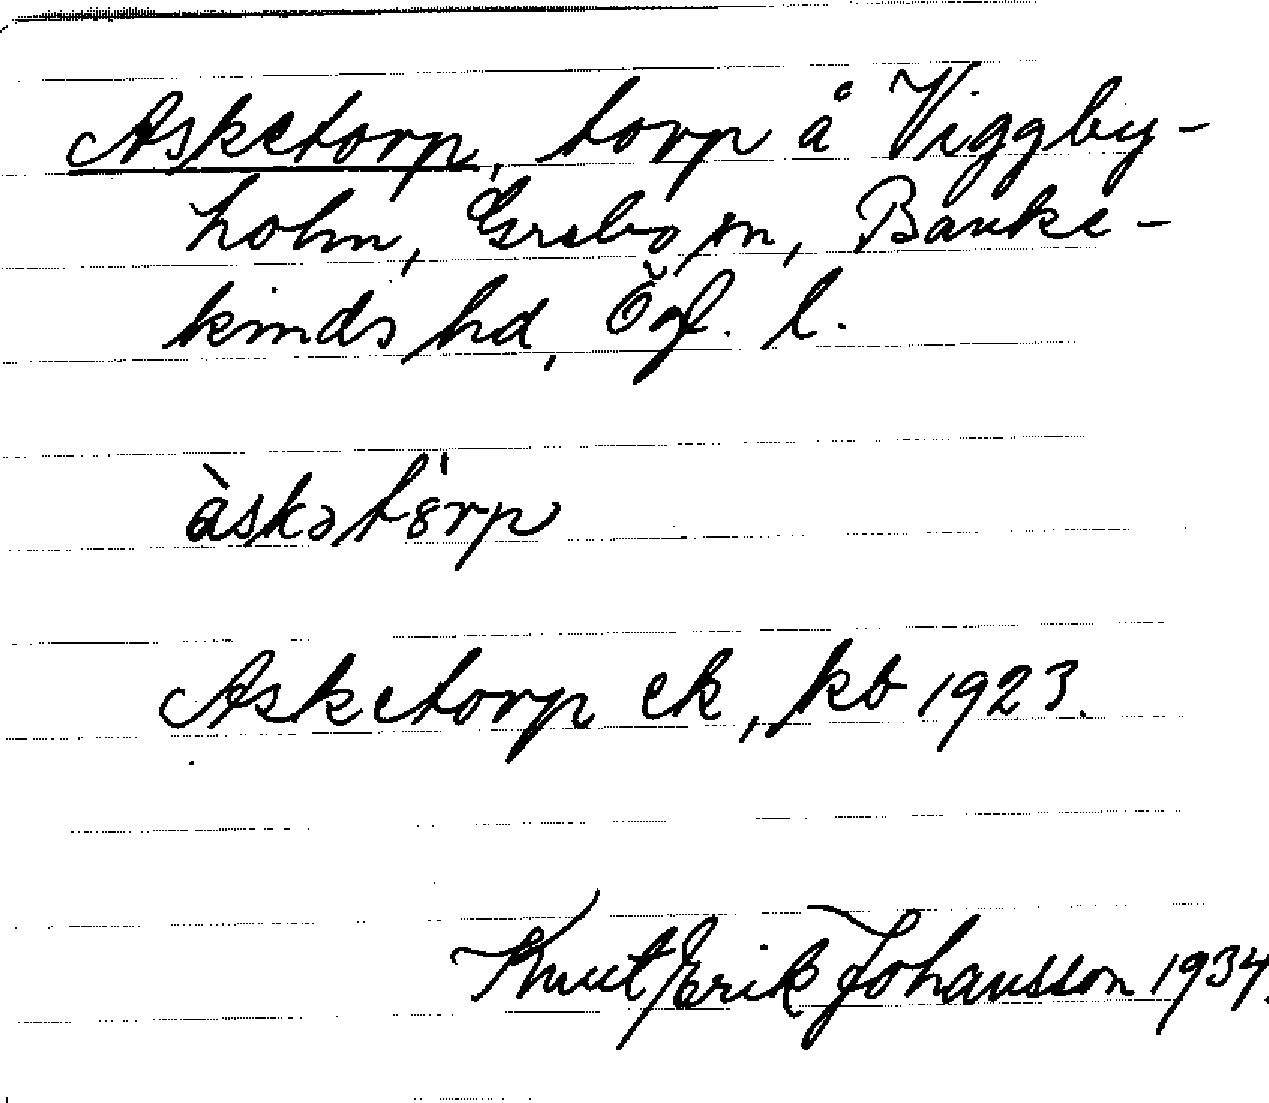 Asketorp, torp å Viggby-
holm, Grebo sn, Banke-
kinds hd, Ög. l.
àskət8'rp
Asketorp ek, kb 1923.
Knut Erik Johansson 1934.